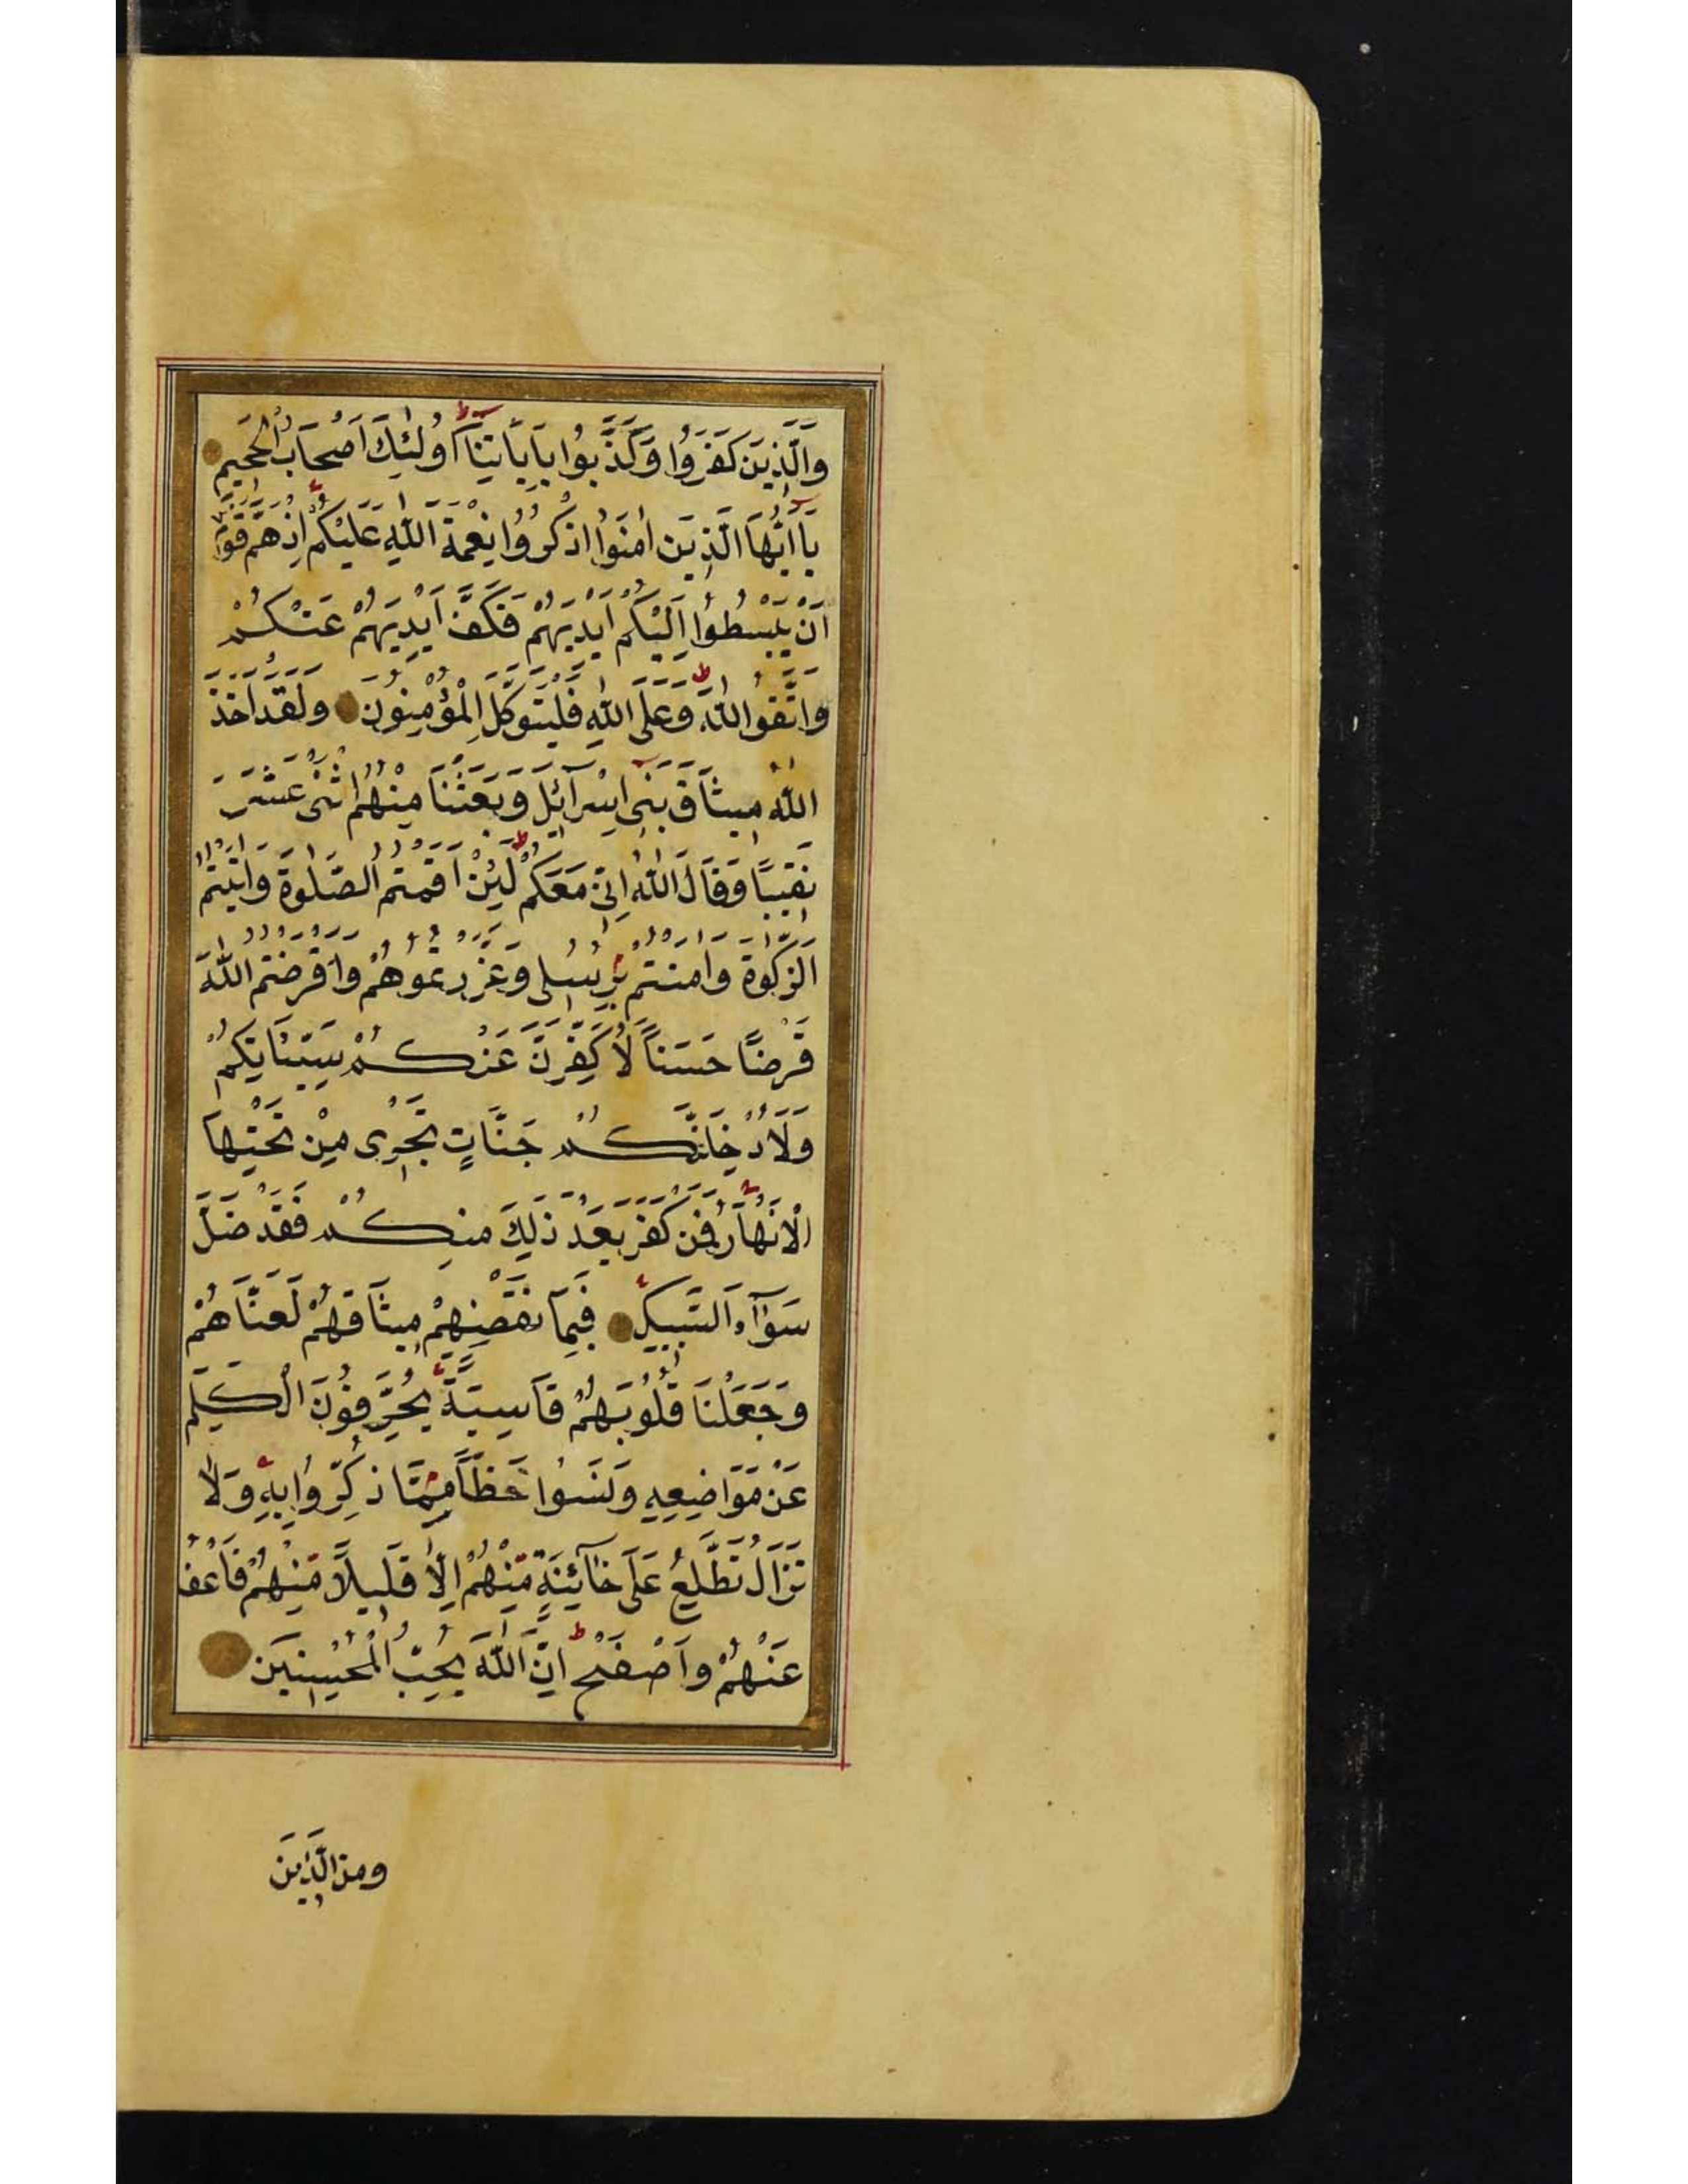 وَالَّذِينَ كَفَرُوا وَكَذَّبُوا بِآيَاتِنَا أُولٰئِكَ أَصْحَابُ الْجَحِيمِ
يَا أَيُّهَا الَّذِينَ اٰمَنُوا اذْكُرُوا نِعْمَةَ اللّٰهِ عَلَيْكُمْ اِذْ هَمَّ قَوْمٌ
اَنْ يَبْسُطُوا اِلَيْكُمْ اَيْدِيَهُمْ فَكَفَّ اَيْدِيَهُمْ عَنْكُمْ
وَاتَّقُوا اللّٰهَ وَعَلَى اللّٰهِ فَلْيَتَوَكَّلِ الْمُؤْمِنُونَ وَلَقَدْ اَخَذَ
اللّٰهُ مِيثَاقَ بَنِى اِسْرَآئِلَ وَبَعَثْنَا مِنْهُمُ اثْنَىْ عَشَرَ
نَقِيبًا وَقَالَ اللّٰهُ اِنِّى مَعَكُمْ لَئِنْ اَقَمْتُمُ الصَّلٰوةَ وَاٰتَيْتُمُ
الزَّكٰوةَ وَاٰمَنْتُمْ بِرُسُلِى وَعَزَّرْتُمُوهُمْ وَاَقْرَضْتُمُ اللّٰهَ
قَرْضًا حَسَنًا لَاُكَفِّرَنَّ عَنْكُمْ سَيِّئَاتِكُمْ
وَلَاُدْخِلَنَّكُمْ جَنَّاتٍ تَجْرِى مِنْ تَحْتِهَا
الْاَنْهَارُ فَمَنْ كَفَرَ بَعْدَ ذٰلِكَ مِنْكُمْ فَقَدْ ضَلَّ
سَوَآءَ السَّبِيلِ فَبِمَا نَقْضِهِمْ مِيثَاقَهُمْ لَعَنَّاهُمْ
وَجَعَلْنَا قُلُوبَهُمْ قَاسِيَةً يُحَرِّفُونَ الْكَلِمَ
عَنْ مَوَاضِعِهِ وَنَسُوا حَظًّا مِمَّا ذُكِّرُوا بِهِ وَلَا
تَزَالُ تَطَّلِعُ عَلَى خَآئِنَةٍ مِنْهُمْ اِلَّا قَلِيلًا مِنْهُمْ فَاعْفُ
عَنْهُمْ وَاصْفَحْ اِنَّ اللّٰهَ يُحِبُّ الْمُحْسِنِينَ
وَمِنَ الَّذِينَ